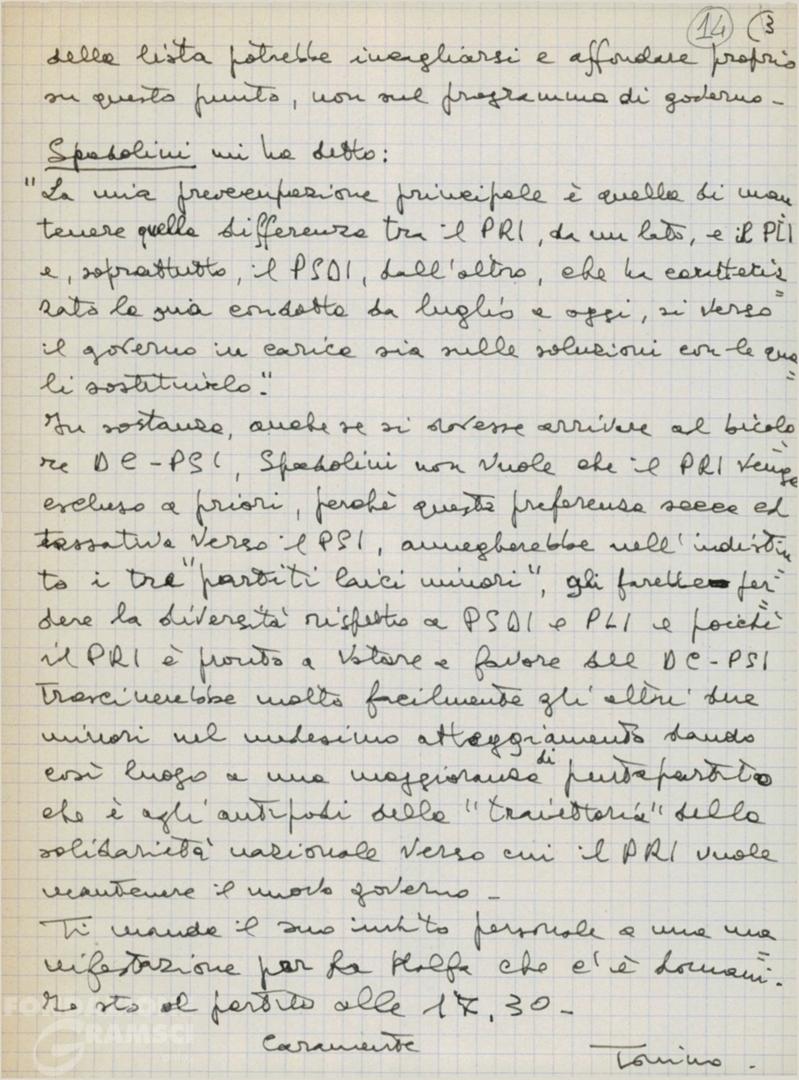 14 (3
della lista potrebbe incagliarsi e affondare proprio
su questo punto, non sul programma di governo -
Spadolini mi ha detto:
"La mia preoccupazione principale è quella di man
tenere quella differenza tra il PRI, da un lato, e il PLI
e, soprattutto, il PSDI, dall'altro, che ha caratteriz
zato la sua condotta da luglio a oggi, sia verso
il governo in carica sia sulle soluzioni con le qua=
li sostituirlo."
In sostanza, anche se si dovesse arrivare al bicolo
re DC-PSI, Spadolini non vuole che il PRI venga
escluso a priori, perchè questa preferenza secca ed
tassativa verso il PSI, annegherebbe nell'indistin
to i tre "partiti laici minori", gli farebbe per=
dere la diversità rispetto a PSDI e PLI e poichè
il PRI è pronto a votare a favore del DC-PSI
trascinerebbe molto facilmente gli altri due
minori nel medesimo atteggiamento dando
così luogo a una maggioranza di pentapartito
che è agli antipodi della "traiettoria" della
solidarietà nazionale verso cui il PRI vuole
mantenere il nuovo governo -
Ti manda il suo invito personale a una ma=
nifestazione per La Malfa che c'è domani.
Resto al partito alle 17,30 -
Caramente
Tonino.
FONDAZIONE
GRAMSCI